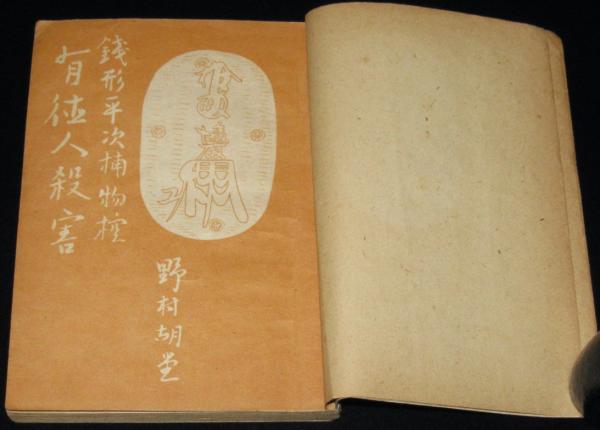 銭形平次捕物控
有徳人殺害
野村胡堂